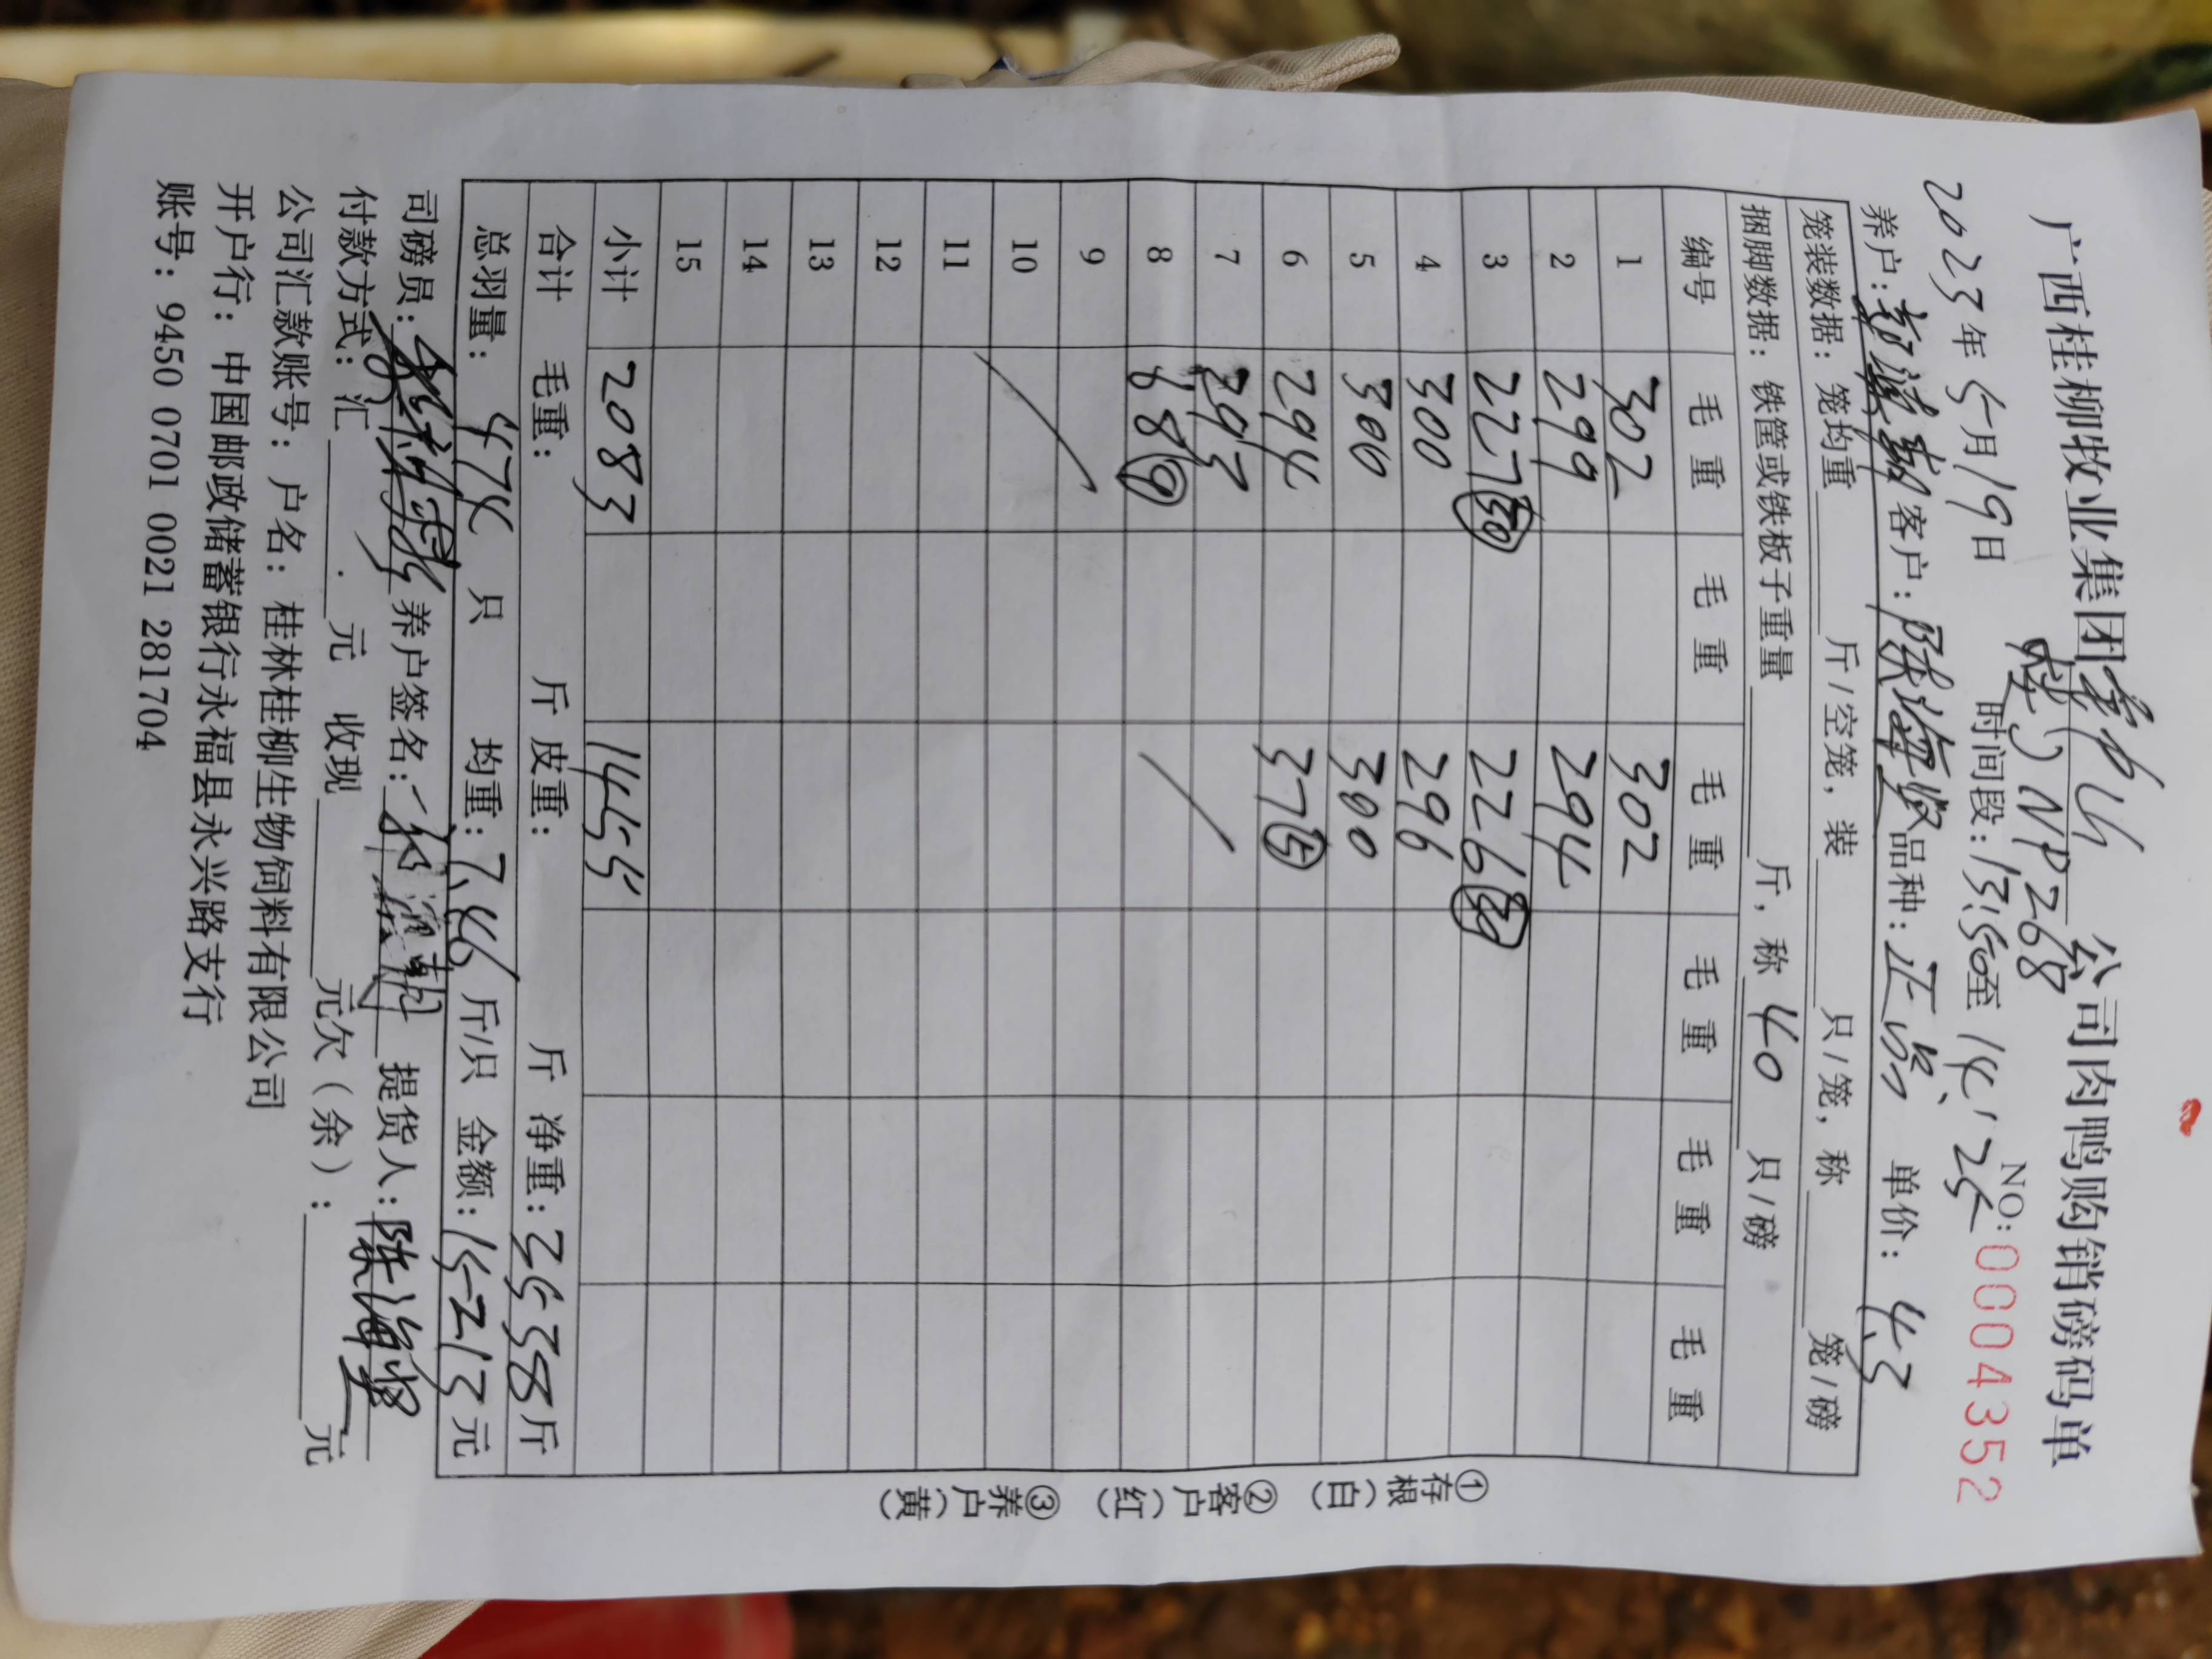 广西桂柳牧业集团 公司肉鸭购销磅码单
NP268 NO:0004352
2023年5月19日 时间段:13:50至14:25
养户: 客户:陈海坚 品种: 单价:4.3
笼装数据:笼均重 斤/空笼,装 只/笼,称 笼/磅
捆脚数据:铁筐或铁板子重量 斤,称 40 只/磅
编号 毛重 毛重 毛重 毛重 毛重 毛重
1 302 302
2 299 294
3 227(30) 226(30)
4 300 296
5 300 300
6 294 37(5)
7 293
8 68(9)
9
10
11
12
13
14
15
小计 2083 1455
合计 毛重: 斤 皮重: 斤 净重:3538斤
总羽量:474 只 均重:7.46 斤/只 金额:15213元
司磅员: 养户签名: 提货人:陈海坚
付款方式:汇 元 收现 元欠(余): 元
公司汇款账号:户名:桂林桂柳生物饲料有限公司
开户行:中国邮政储蓄银行永福县永兴路支行
账号:9450 0701 0021 281704
①存根(白) ②客户(红) ③养户(黄)